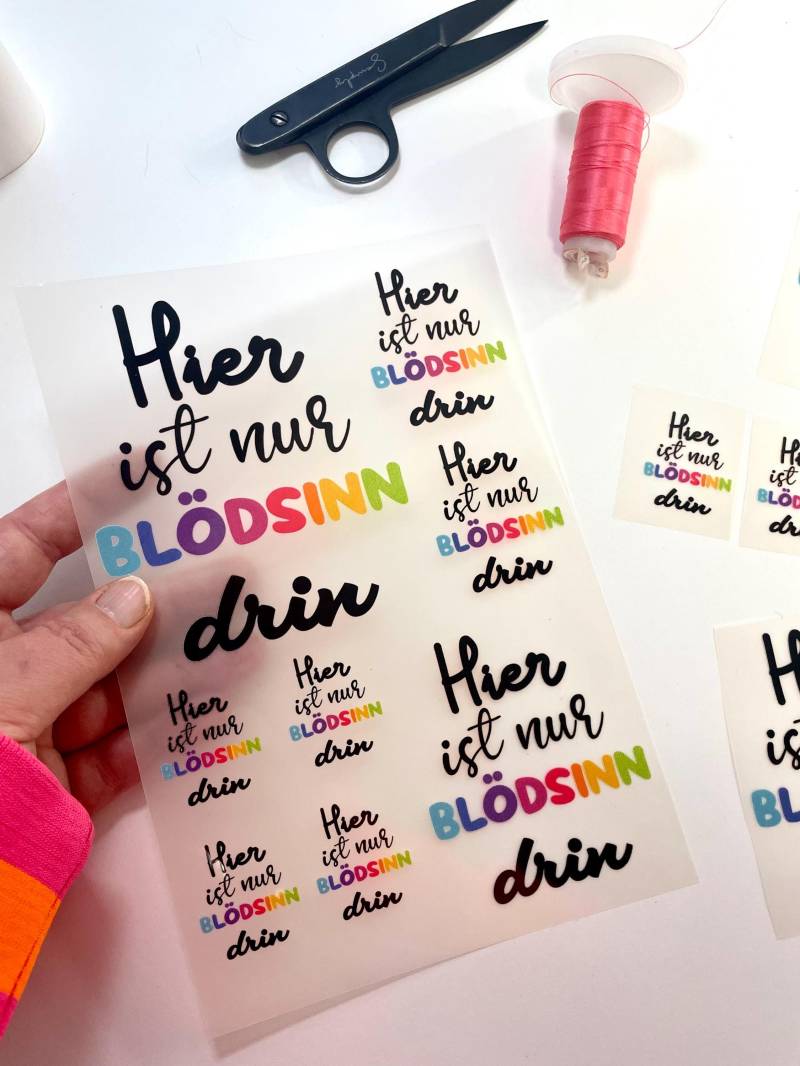 Hier
ist nur
BLÖDSINN
drin
Hier
ist nur
BLÖDSINN
drin
Hier
ist nur
BLÖDSINN
drin
Hier
ist nur
BLÖDSINN
drin
Hier
ist nur
BLÖDSINN
drin
Hier
ist nur
BLÖDSINN
drin
Hier
ist nur
BLÖDSINN
drin
Hier
ist nur
BLÖDSINN
drin
Hier
ist nur
BLÖDSINN
drin